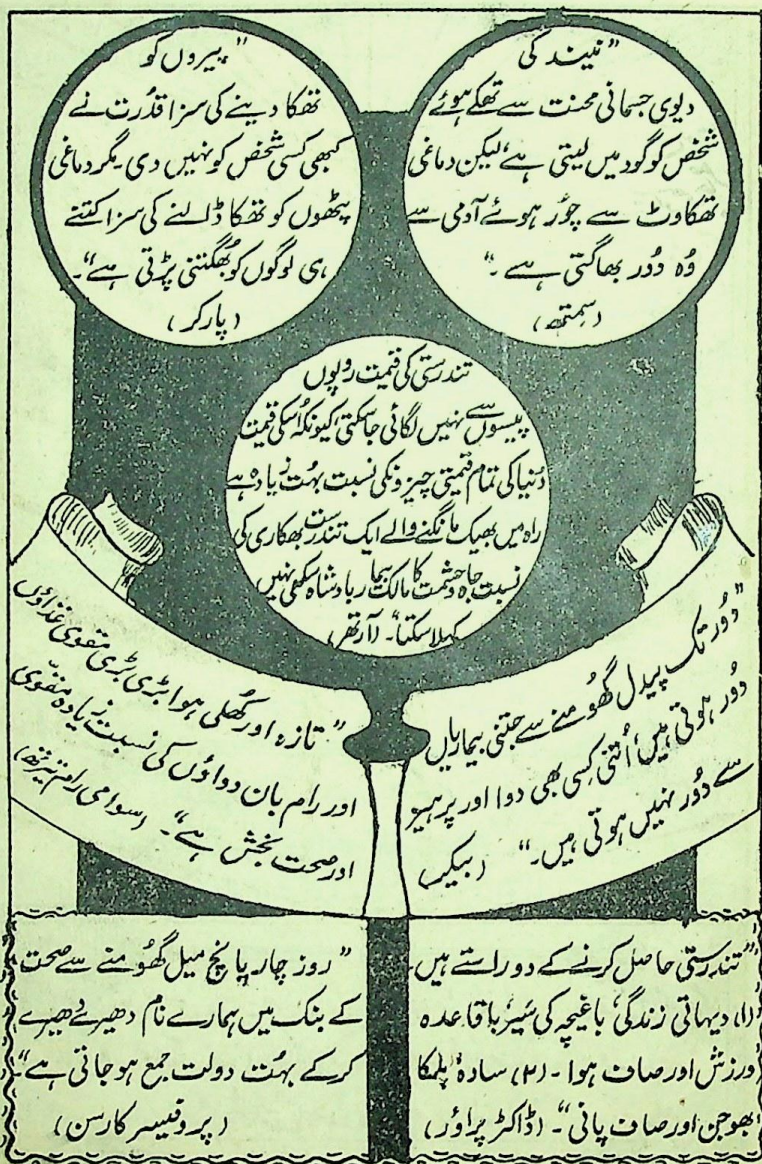 "نیند کی
دیوی جسمانی محنت سے تھکے ہوئے
شخص کو گود میں لیتی ہے، لیکن دماغی
تھکاوٹ سے چُور ہوئے آدمی سے
وُہ دُور بھاگتی ہے۔"
(سمتھ)
"پیروں کو
تھکا دینے کی سزا قدُرت نے
کبھی کسی شخص کو نہیں دی۔ مگر دماغی
پٹھوں کو تھکا ڈالنے کی سزا کتنے
ہی لوگوں کو بھُگتنی پڑتی ہے"۔
(پارکر)
تندرستی کی قیمت روپوں
پیسوں سے نہیں لگائی جاسکتی، کیونکہ اُسکی قیمت
دُنیا کی تمام قیمتی چیزونکی نسبت بہُت زیادہ ہے
راہ میں بھیک مانگنے والے ایک تندرست بھکاری کی
نسبت جاہ و حشمت کا مالک بیمار بادشاہ سکھی نہیں
کہلا سکتا"۔ (آرتھر)
"دُور تک پیدل گھُومنے سے جتنی بیماریاں
دُور ہوتی ہیں، اُتنی کِسی بھی دوا اور پرہیز
سے دُور نہیں ہوتی ہیں۔" (بیکر)
"تازہ اور کھُلی ہوا بڑی بڑی مقوی غذاؤں
اور رام بان دواؤں کی نسبت زیادہ مقوّی
اور صحت بخش ہے"۔ (سوامی رام تیرتھ)
"تندرستی حاصل کرنے کے دو راستے ہیں۔
(۱) دیہاتی زندگی، باغیچہ کی سَیر، باقاعدہ
ورزش اور صاف ہوا۔ (۲) سادہ، ہلکا
بھوجن اور صاف پانی"۔ (ڈاکٹر براؤر)
"روز چار پانچ میل گھُومنے سے صحت
کے بنک میں ہمارے نام دھیرے دھیرے
کرکے بہُت دولت جمع ہو جاتی ہے"
(پروفیسر کارسن)